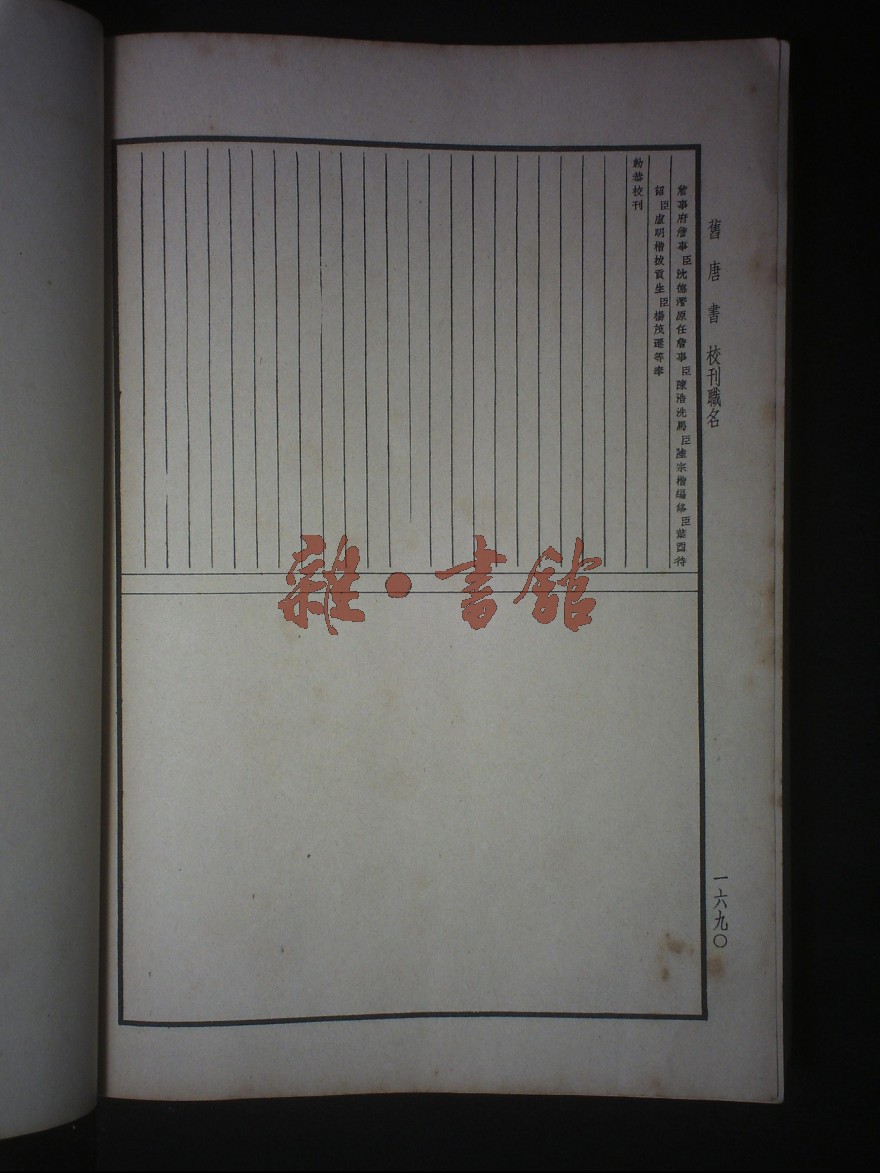 舊唐書 校刊職名
詹事府詹事臣沈德潛原任詹事臣陳浩洗馬臣陸宗楷編修臣葉酉待
詔臣盧明楷拔貢生臣楊茂遷等奉
勅恭校刊
一六九〇
雜•書館